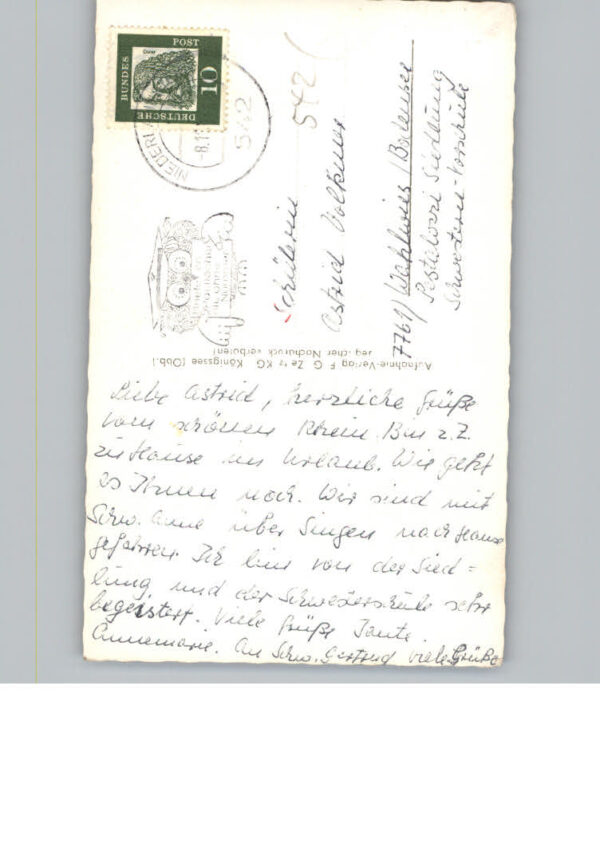 DEUTSCHE
BUNDES
POST
10
542
-8.1
NIEDERL
542
Schülerin
Astrid Volkmer
7761) Wahlwies / Bodensee
Pestalozzi Siedlung
Schwestern-Vorschule
Aufnahme-Verlag F. G. Ze tz KG. Königssee (Obb.)
jeglicher Nachdruck verboten!
Liebe Astrid, herzliche Grüße
vom schönen Rhein. Bin z.Z.
zu Hause im Urlaub. Wie geht
es Ihnen noch. Wir sind mit
Schw. Anne über Singen nach Hause
gefahren. Ich bin von der Sied=
lung und der Schwesterschule sehr
begeistert. Viele Grüße Tante.
Annemarie. An Schw. Gertrud viele Grüße